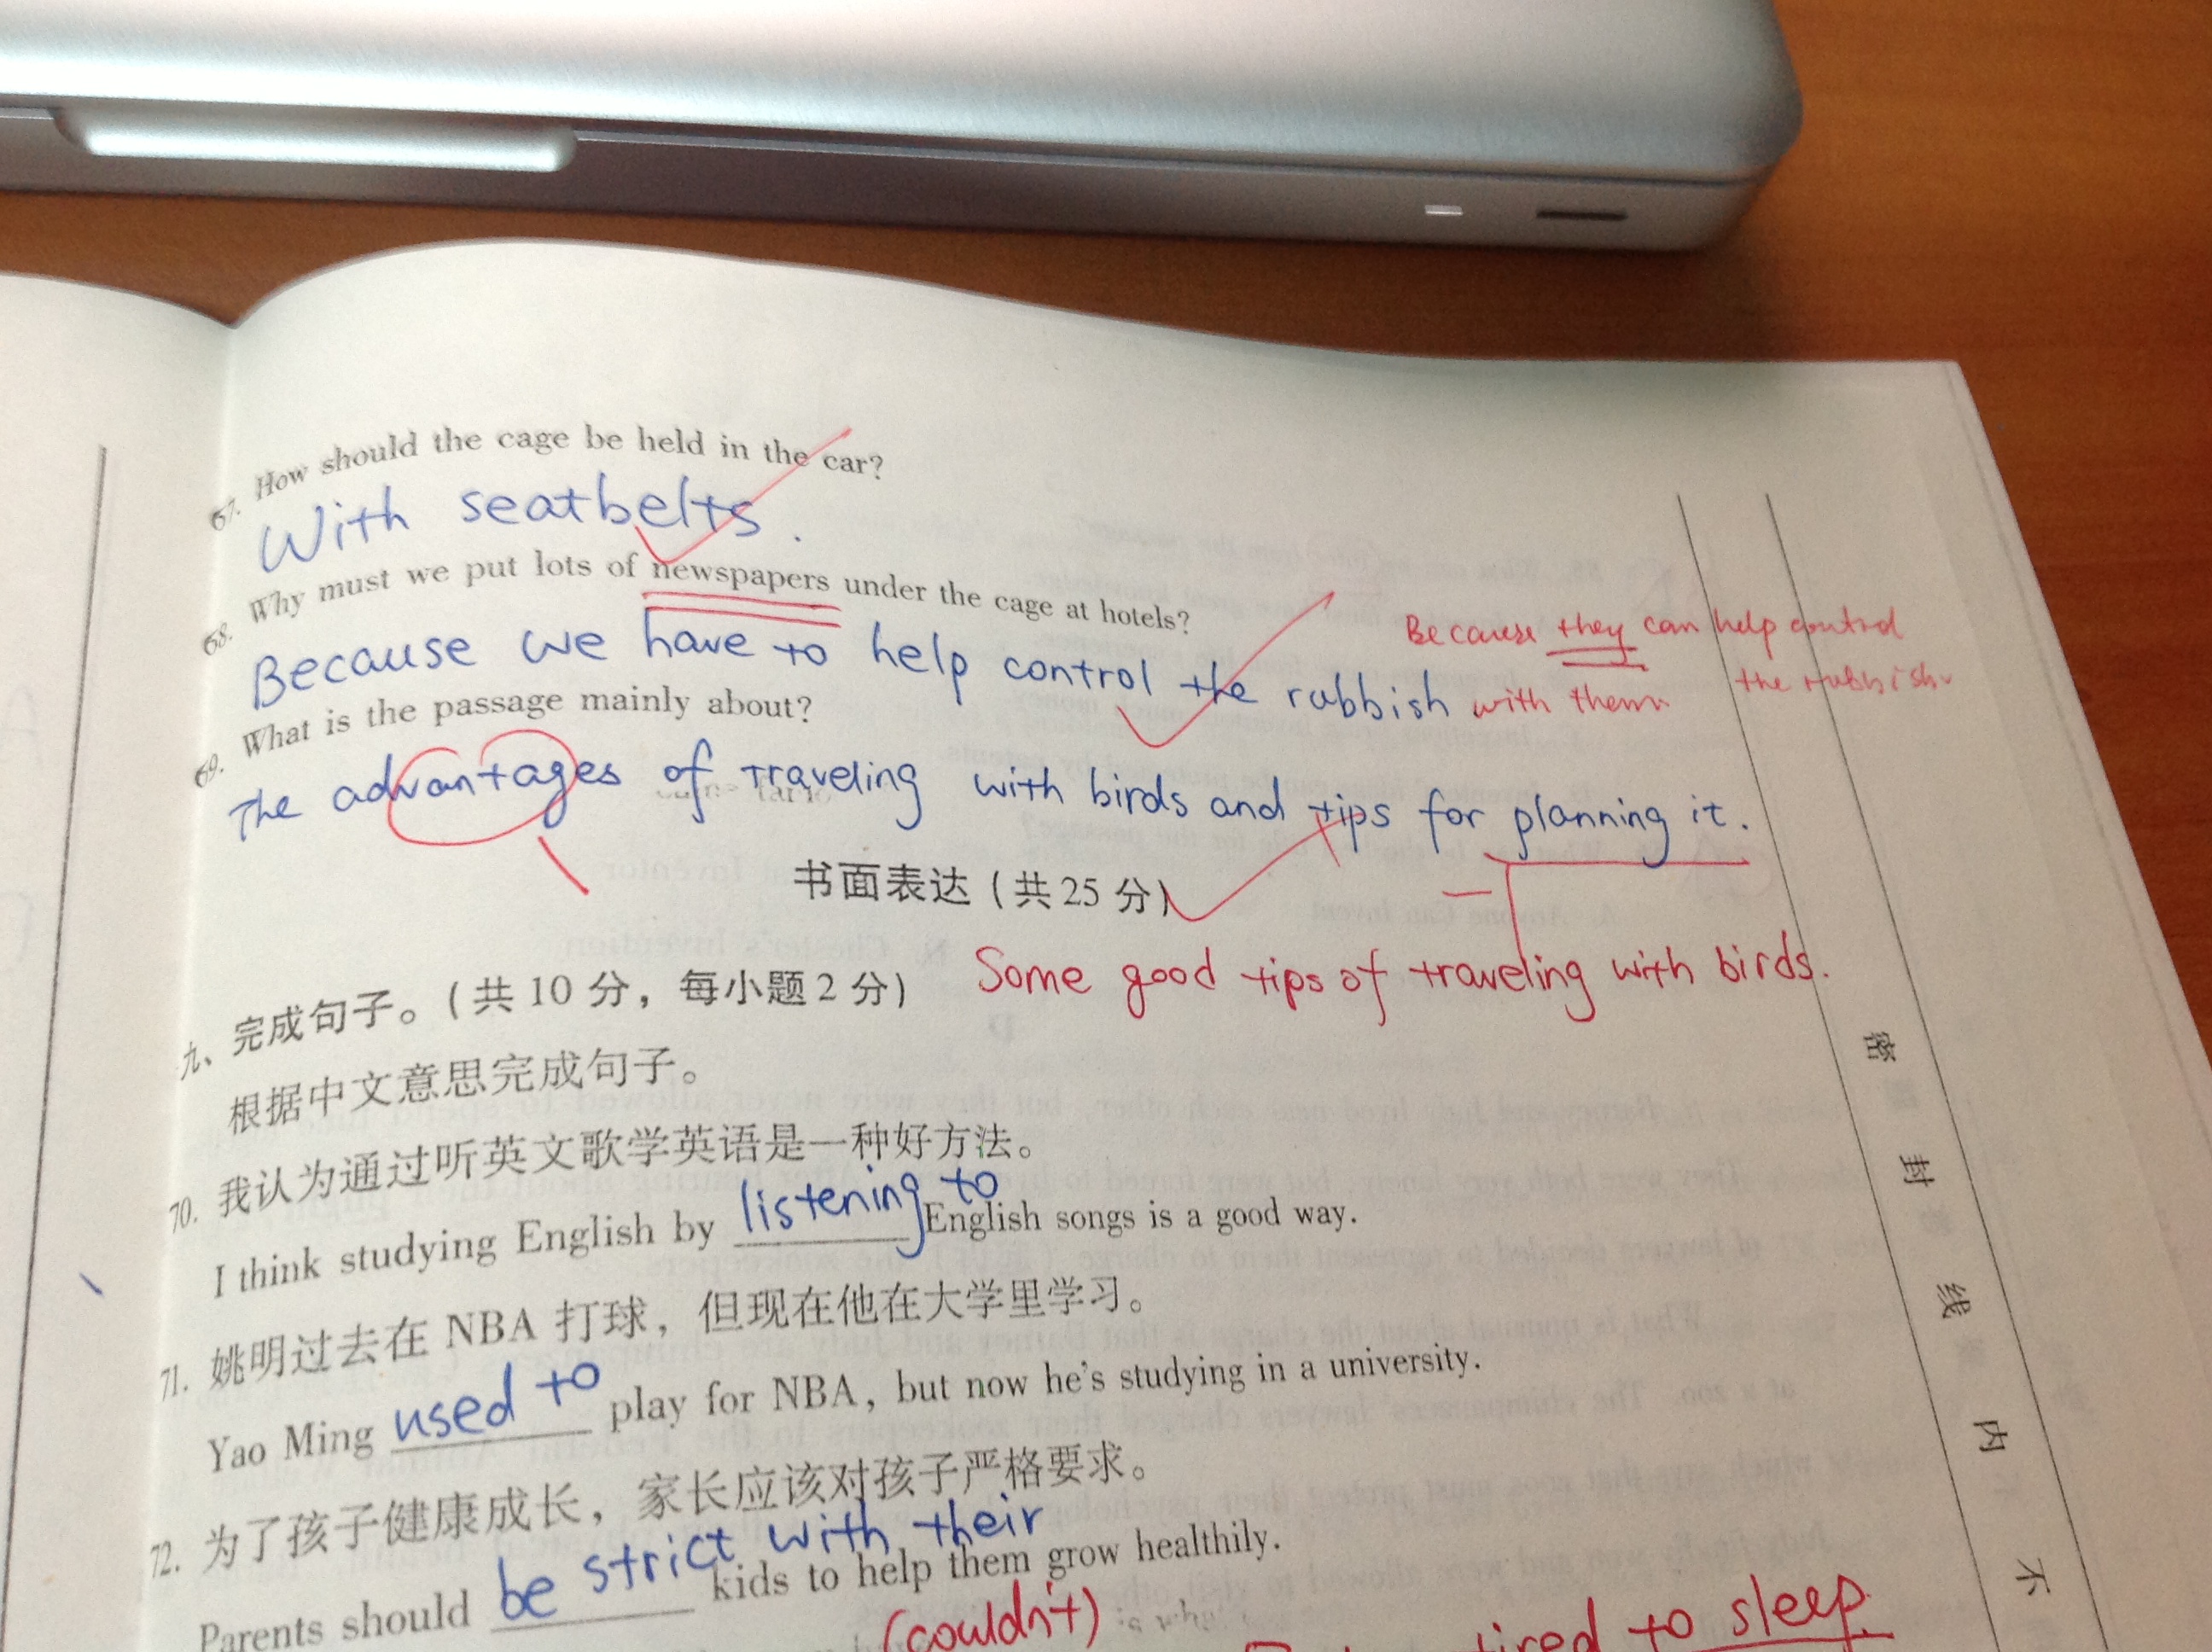 67. How should the cage be held in the car?
With seatbelts.
68. Why must we put lots of newspapers under the cage at hotels?
Because we have to help control the rubbish with them.
Because they can help control
the rubbish.
69. What is the passage mainly about?
The advantages of traveling with birds and tips for planning it.
书面表达(共25分)
Some good tips of traveling with birds.
九、完成句子。(共10分,每小题2分)
根据中文意思完成句子。
70. 我认为通过听英文歌学英语是一种好方法。
I think studying English by listening to English songs is a good way.
71. 姚明过去在 NBA 打球,但现在他在大学里学习。
Yao Ming used to play for NBA, but now he's studying in a university.
72. 为了孩子健康成长,家长应该对孩子严格要求。
Parents should be strict with their kids to help them grow healthily.
(couldn't)
tired to sleep.
密
封
线
内
不